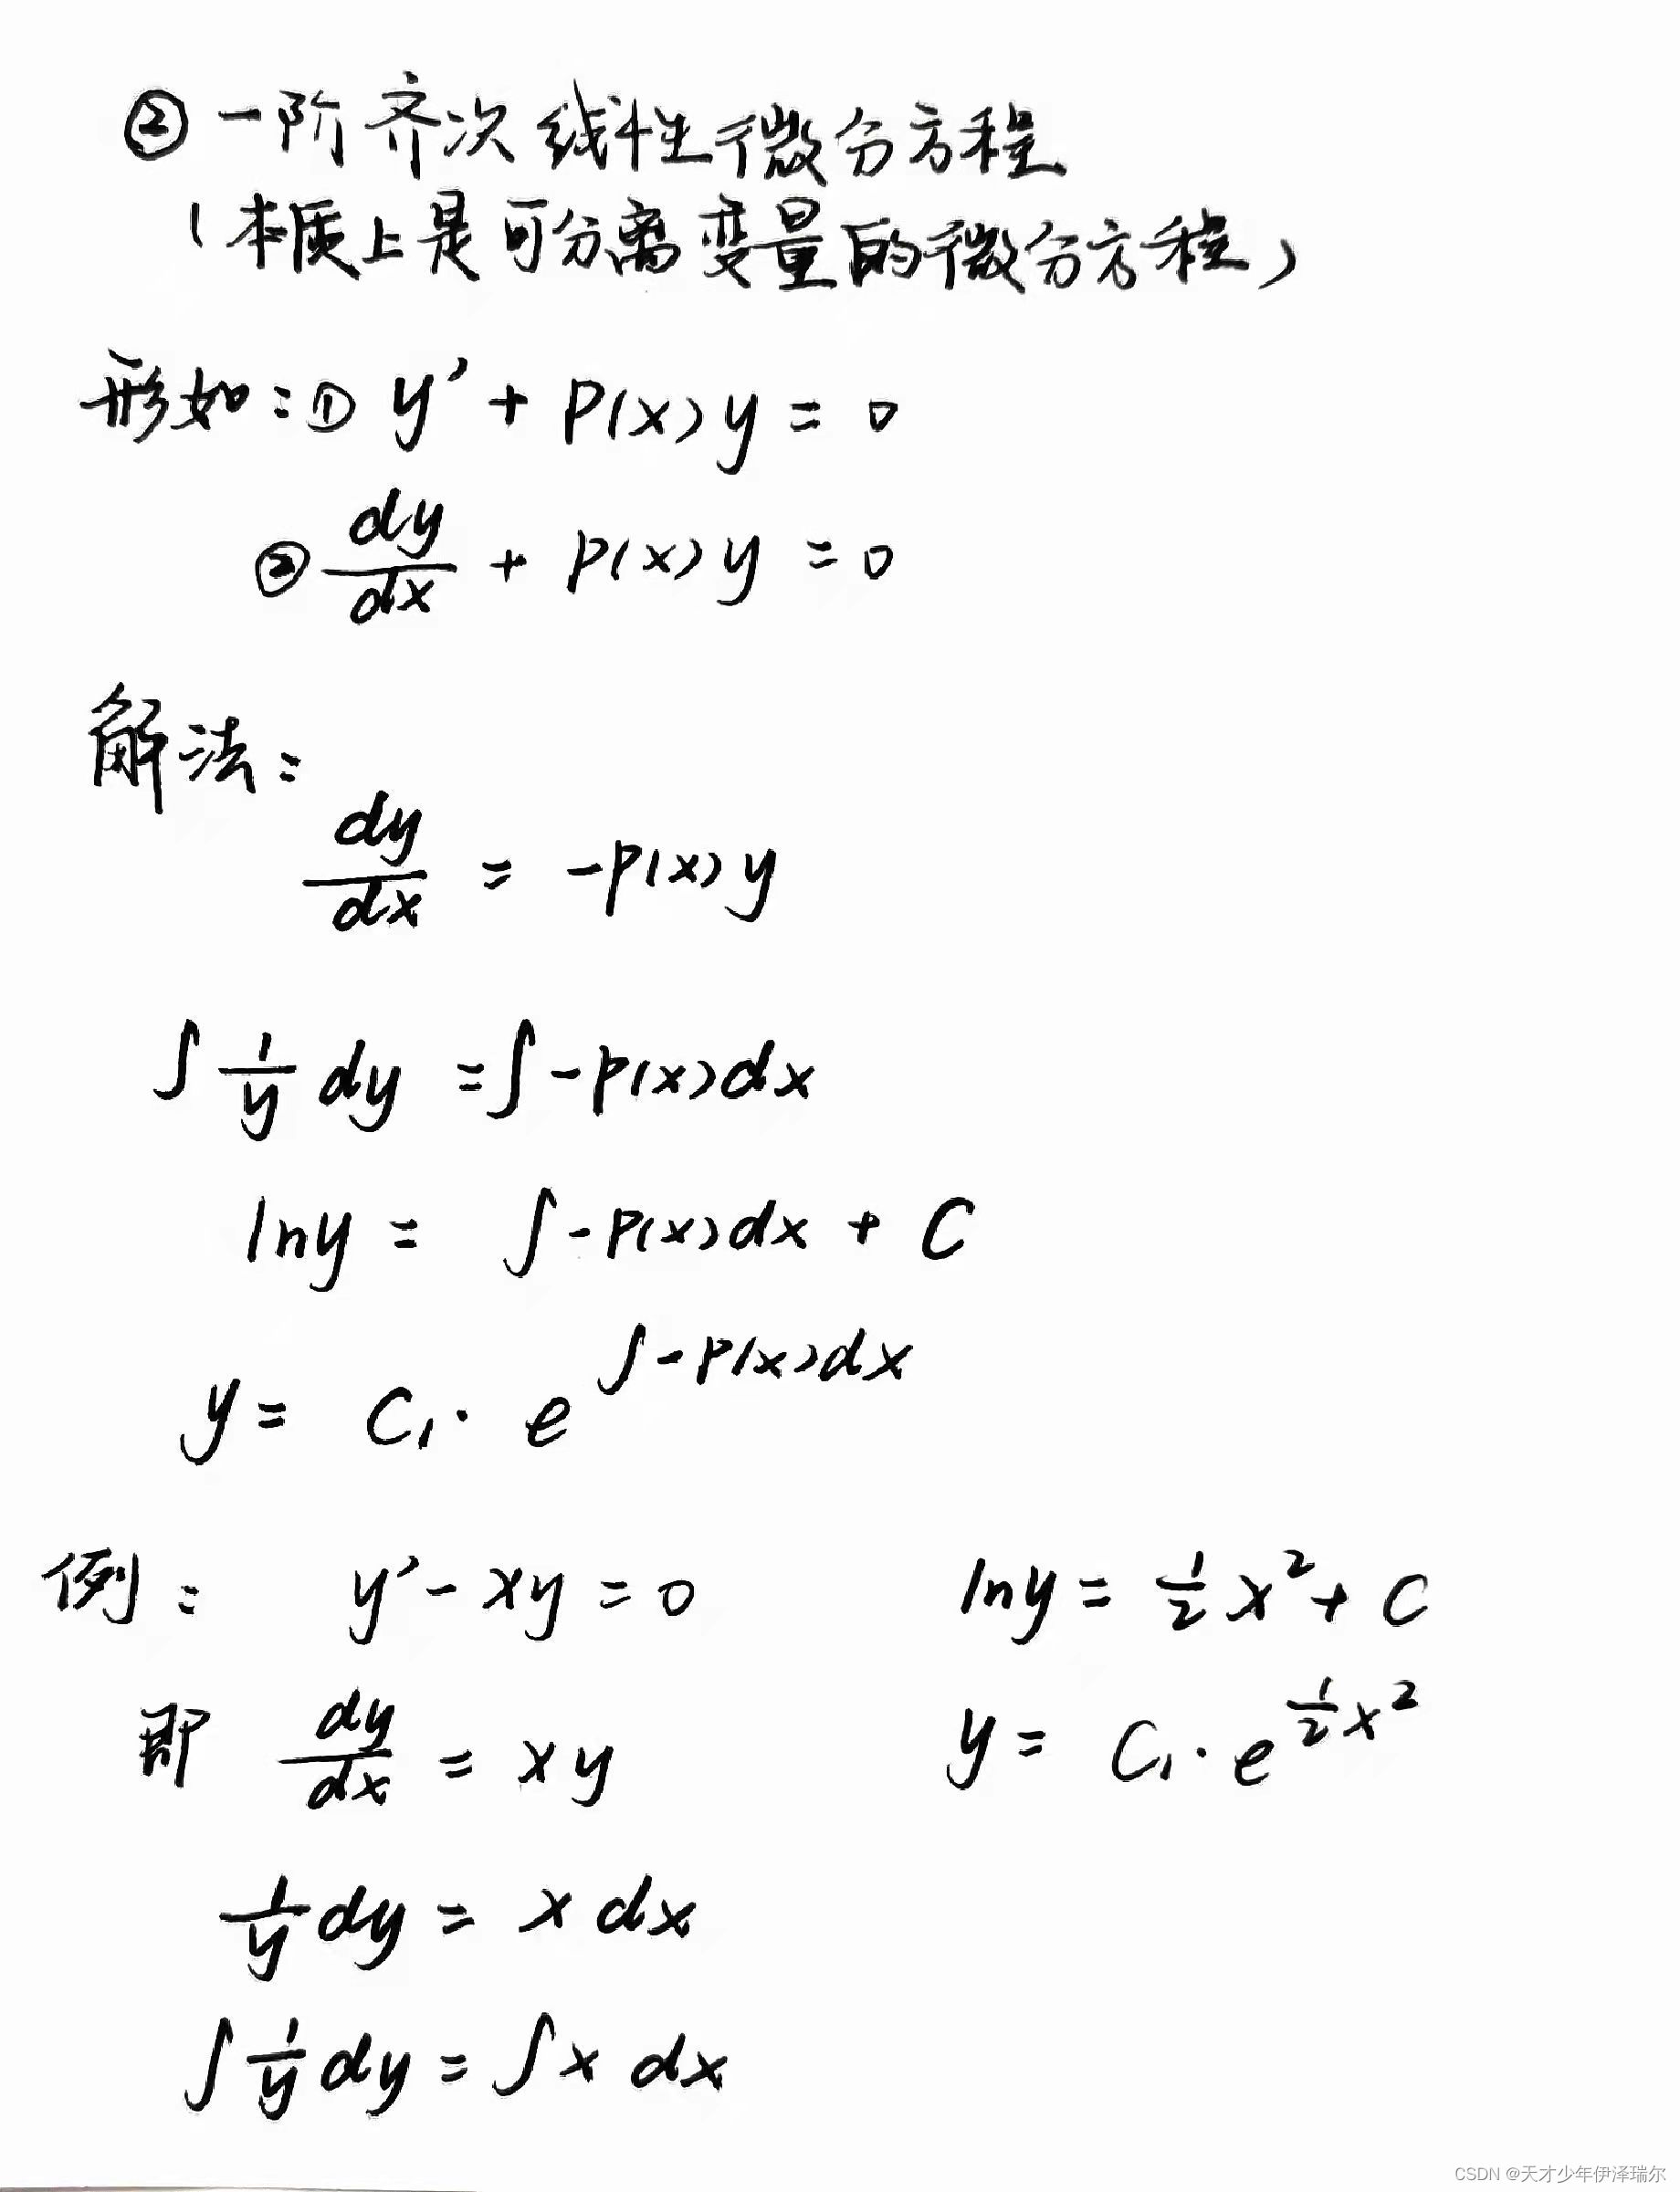 ② 一阶齐次线性微分方程
(本质上是可分离变量的微分方程)
形如:① y' + P(x)y = 0
② dy/dx + P(x)y = 0
解法:
dy/dx = -P(x)y
∫ 1/y dy = ∫ -P(x)dx
lny = ∫ -P(x)dx + C
y = C₁ · e^(∫ -P(x)dx)
例: y' - xy = 0
即 dy/dx = xy
1/y dy = x dx
∫ 1/y dy = ∫ x dx
lny = 1/2 x² + C
y = C₁ · e^(1/2 x²)
CSDN @天才少年伊泽瑞尔